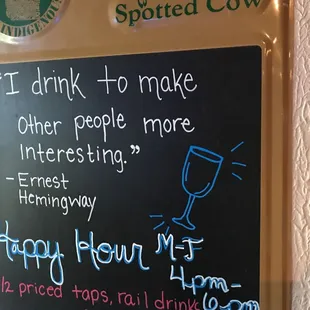 INDIGENOUS
Spotted Cow
"I drink to make
Other people more
Interesting."
- Ernest
Hemingway
Happy Hour M-F
4pm-
6pm
1/2 priced taps, rail drinks